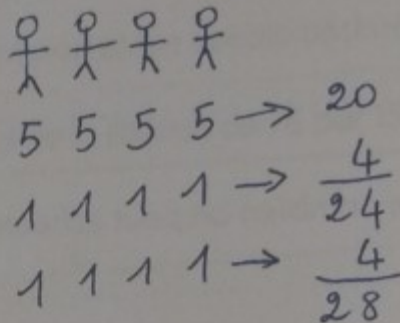 5 5 5 5 → 20
1 1 1 1 → 4
24
1 1 1 1 → 4
28